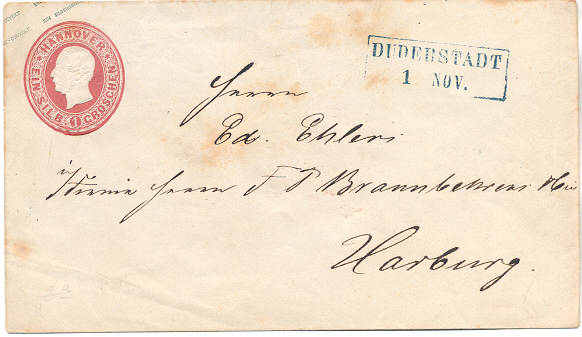 HANNOVER
EIN SILB. GROSCHEN
1
DUDERSTADT
1 NOV.
Herrn
Ed. Ehlers
Herrn F P
Harburg.